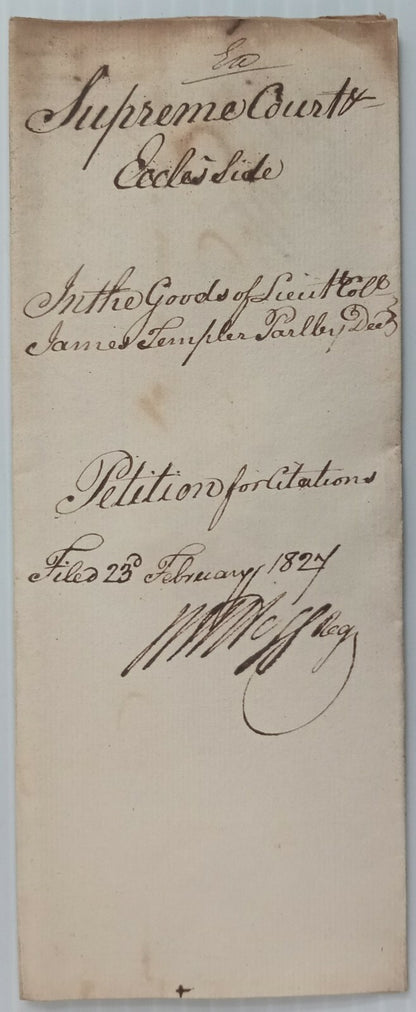 Ex
Supreme Court &
Eccles Side
In the Goods of Lieut Coll
James Templer Parlby Decd
Petition for Citations
Filed 23d February 1827
Reg